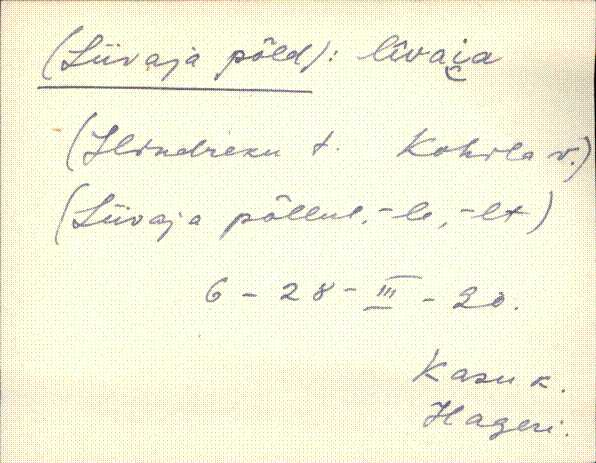 (Liivaja põld): līvai̯a
(Hindreku t. Kohila v.)
(Liivaja põllul, -le, -lt)
6 - 28 - III - 20.
Kasu k.
Hageri.